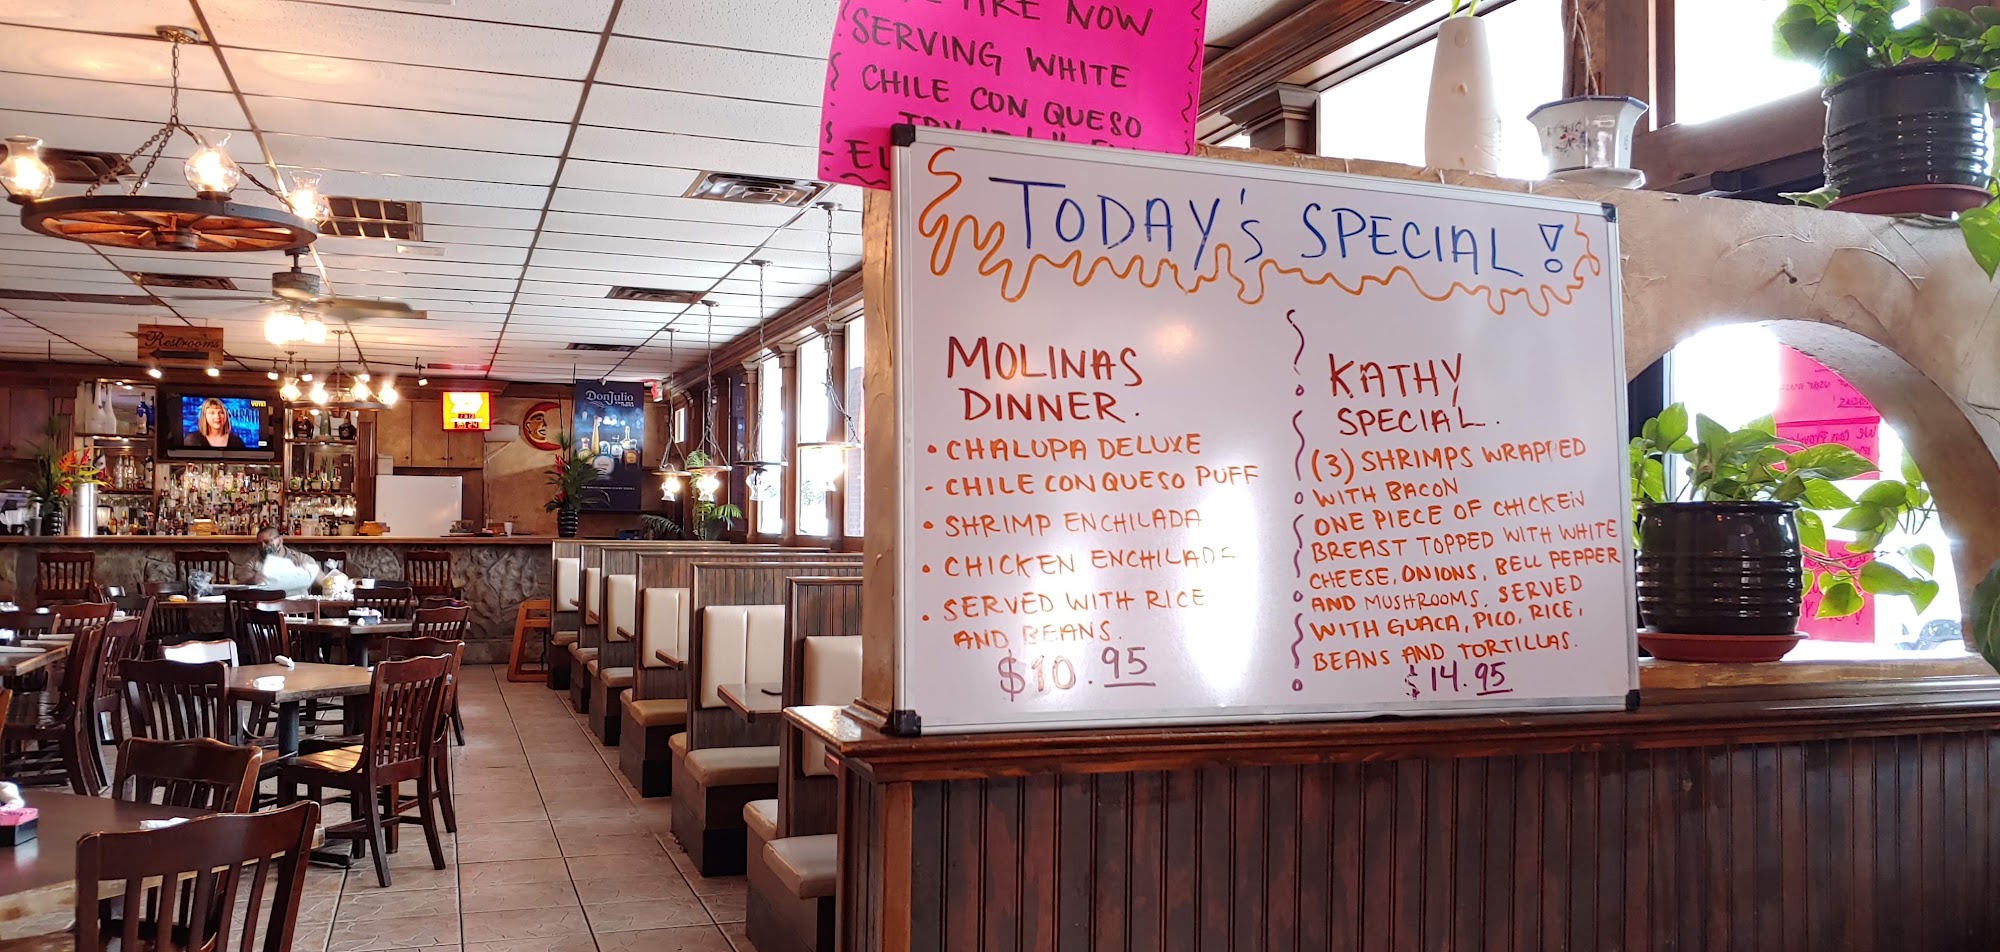 ARE NOW
SERVING WHITE
CHILE CON QUESO
TODAY'S SPECIAL!
MOLINAS
DINNER.
• CHALUPA DELUXE
- CHILE CON QUESO PUFF
• SHRIMP ENCHILADA
• CHICKEN ENCHILADE
• SERVED WITH RICE
AND BEANS.
$10.95
KATHY
SPECIAL.
(3) SHRIMPS WRAPPED
WITH BACON
ONE PIECE OF CHICKEN
BREAST TOPPED WITH WHITE
CHEESE, ONIONS, BELL PEPPER
AND MUSHROOMS. SERVED
WITH GUACA, PICO, RICE,
BEANS AND TORTILLAS.
$14.95
Restrooms
VOTE!
DonJulio